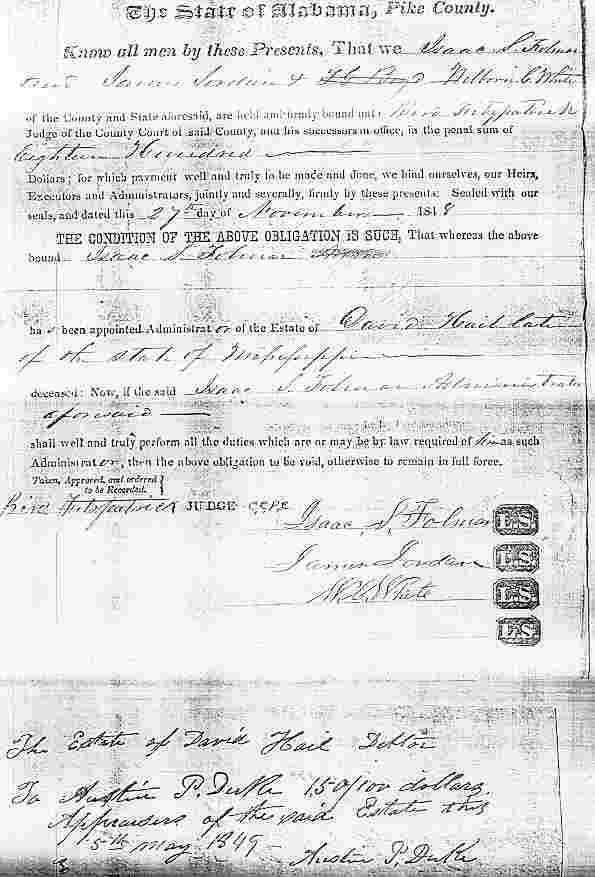 The State of Alabama, Pike County.
Know all men by these Presents, That we Isaac S. Folmar
and James Jordan & Welborn C. White
of the County and State aforesaid, are held and firmly bound unto Fitzpatrick
Judge of the County Court of said County, and his successors in office, in the penal sum of
Eighteen Hundred
Dollars; for which payment well and truly to be made and done, we bind ourselves, our Heirs,
Executors and Administrators, jointly and severally, firmly by these presents. Sealed with our
seals, and dated this 27th day of November 1848
THE CONDITION OF THE ABOVE OBLIGATION IS SUCH, That whereas the above
bound Isaac S Folmar
ha s been appointed Administrat or of the Estate of David Hail late
of the state of Mississippi
deceased: Now, if the said Isaac S. Folmar Administrator
aforesaid
shall well and truly perform all the duties which are or may be by law required of him as such
Administrat or, then the above obligation to be void, otherwise to remain in full force.
Taken, Approved, and ordered
to be Recorded.
Fitzpatrick JUDGE CCPC
Isaac S. Folmar L.S.
James Jordan L.S.
W. C. White L.S.
L.S.
The Estate of David Hail Debtor
To Austin P. Duke 150/100 dollars.
Appraisers of the said Estate this
5th may 1849
Austin P. Duke